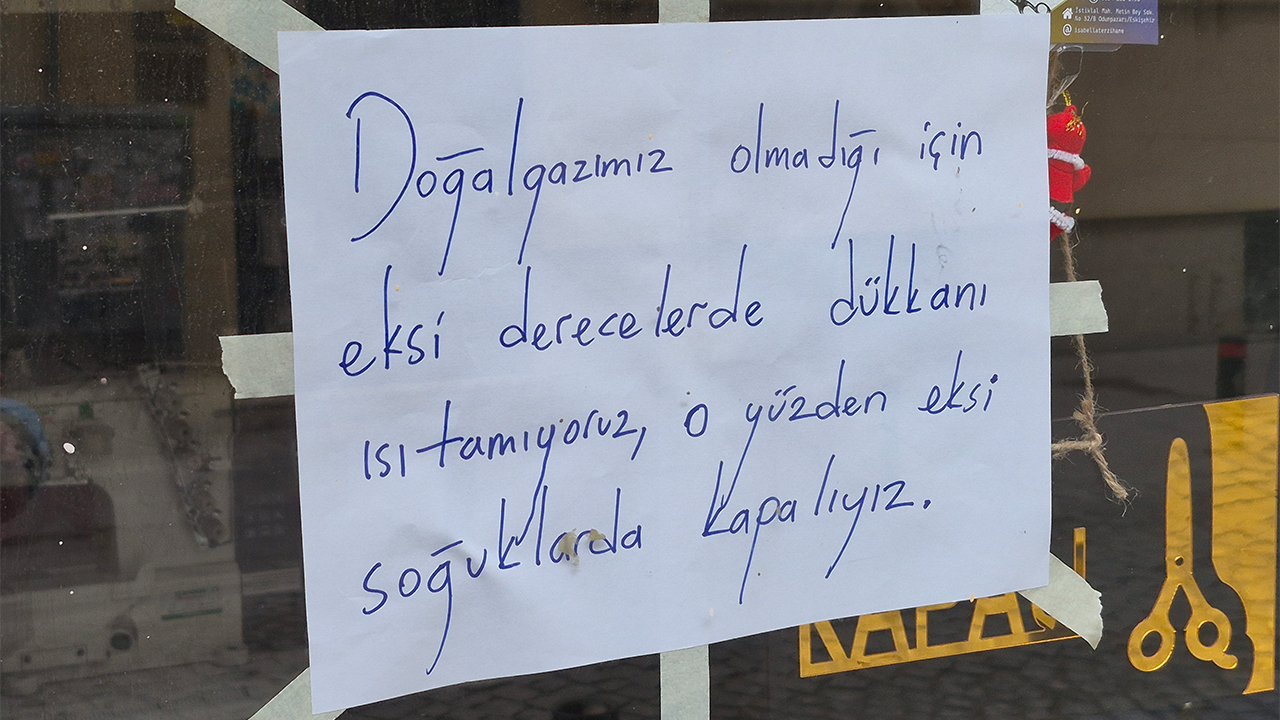 İstiklal Mah. Metin Bey Sok.
No 32/8 Odunpazarı/Eskişehir
isabellaterzihane
Doğalgazımız olmadığı için
eksi derecelerde dükkanı
ısıtamıyoruz, o yüzden eksi
soğuklarda kapalıyız.
KAPA